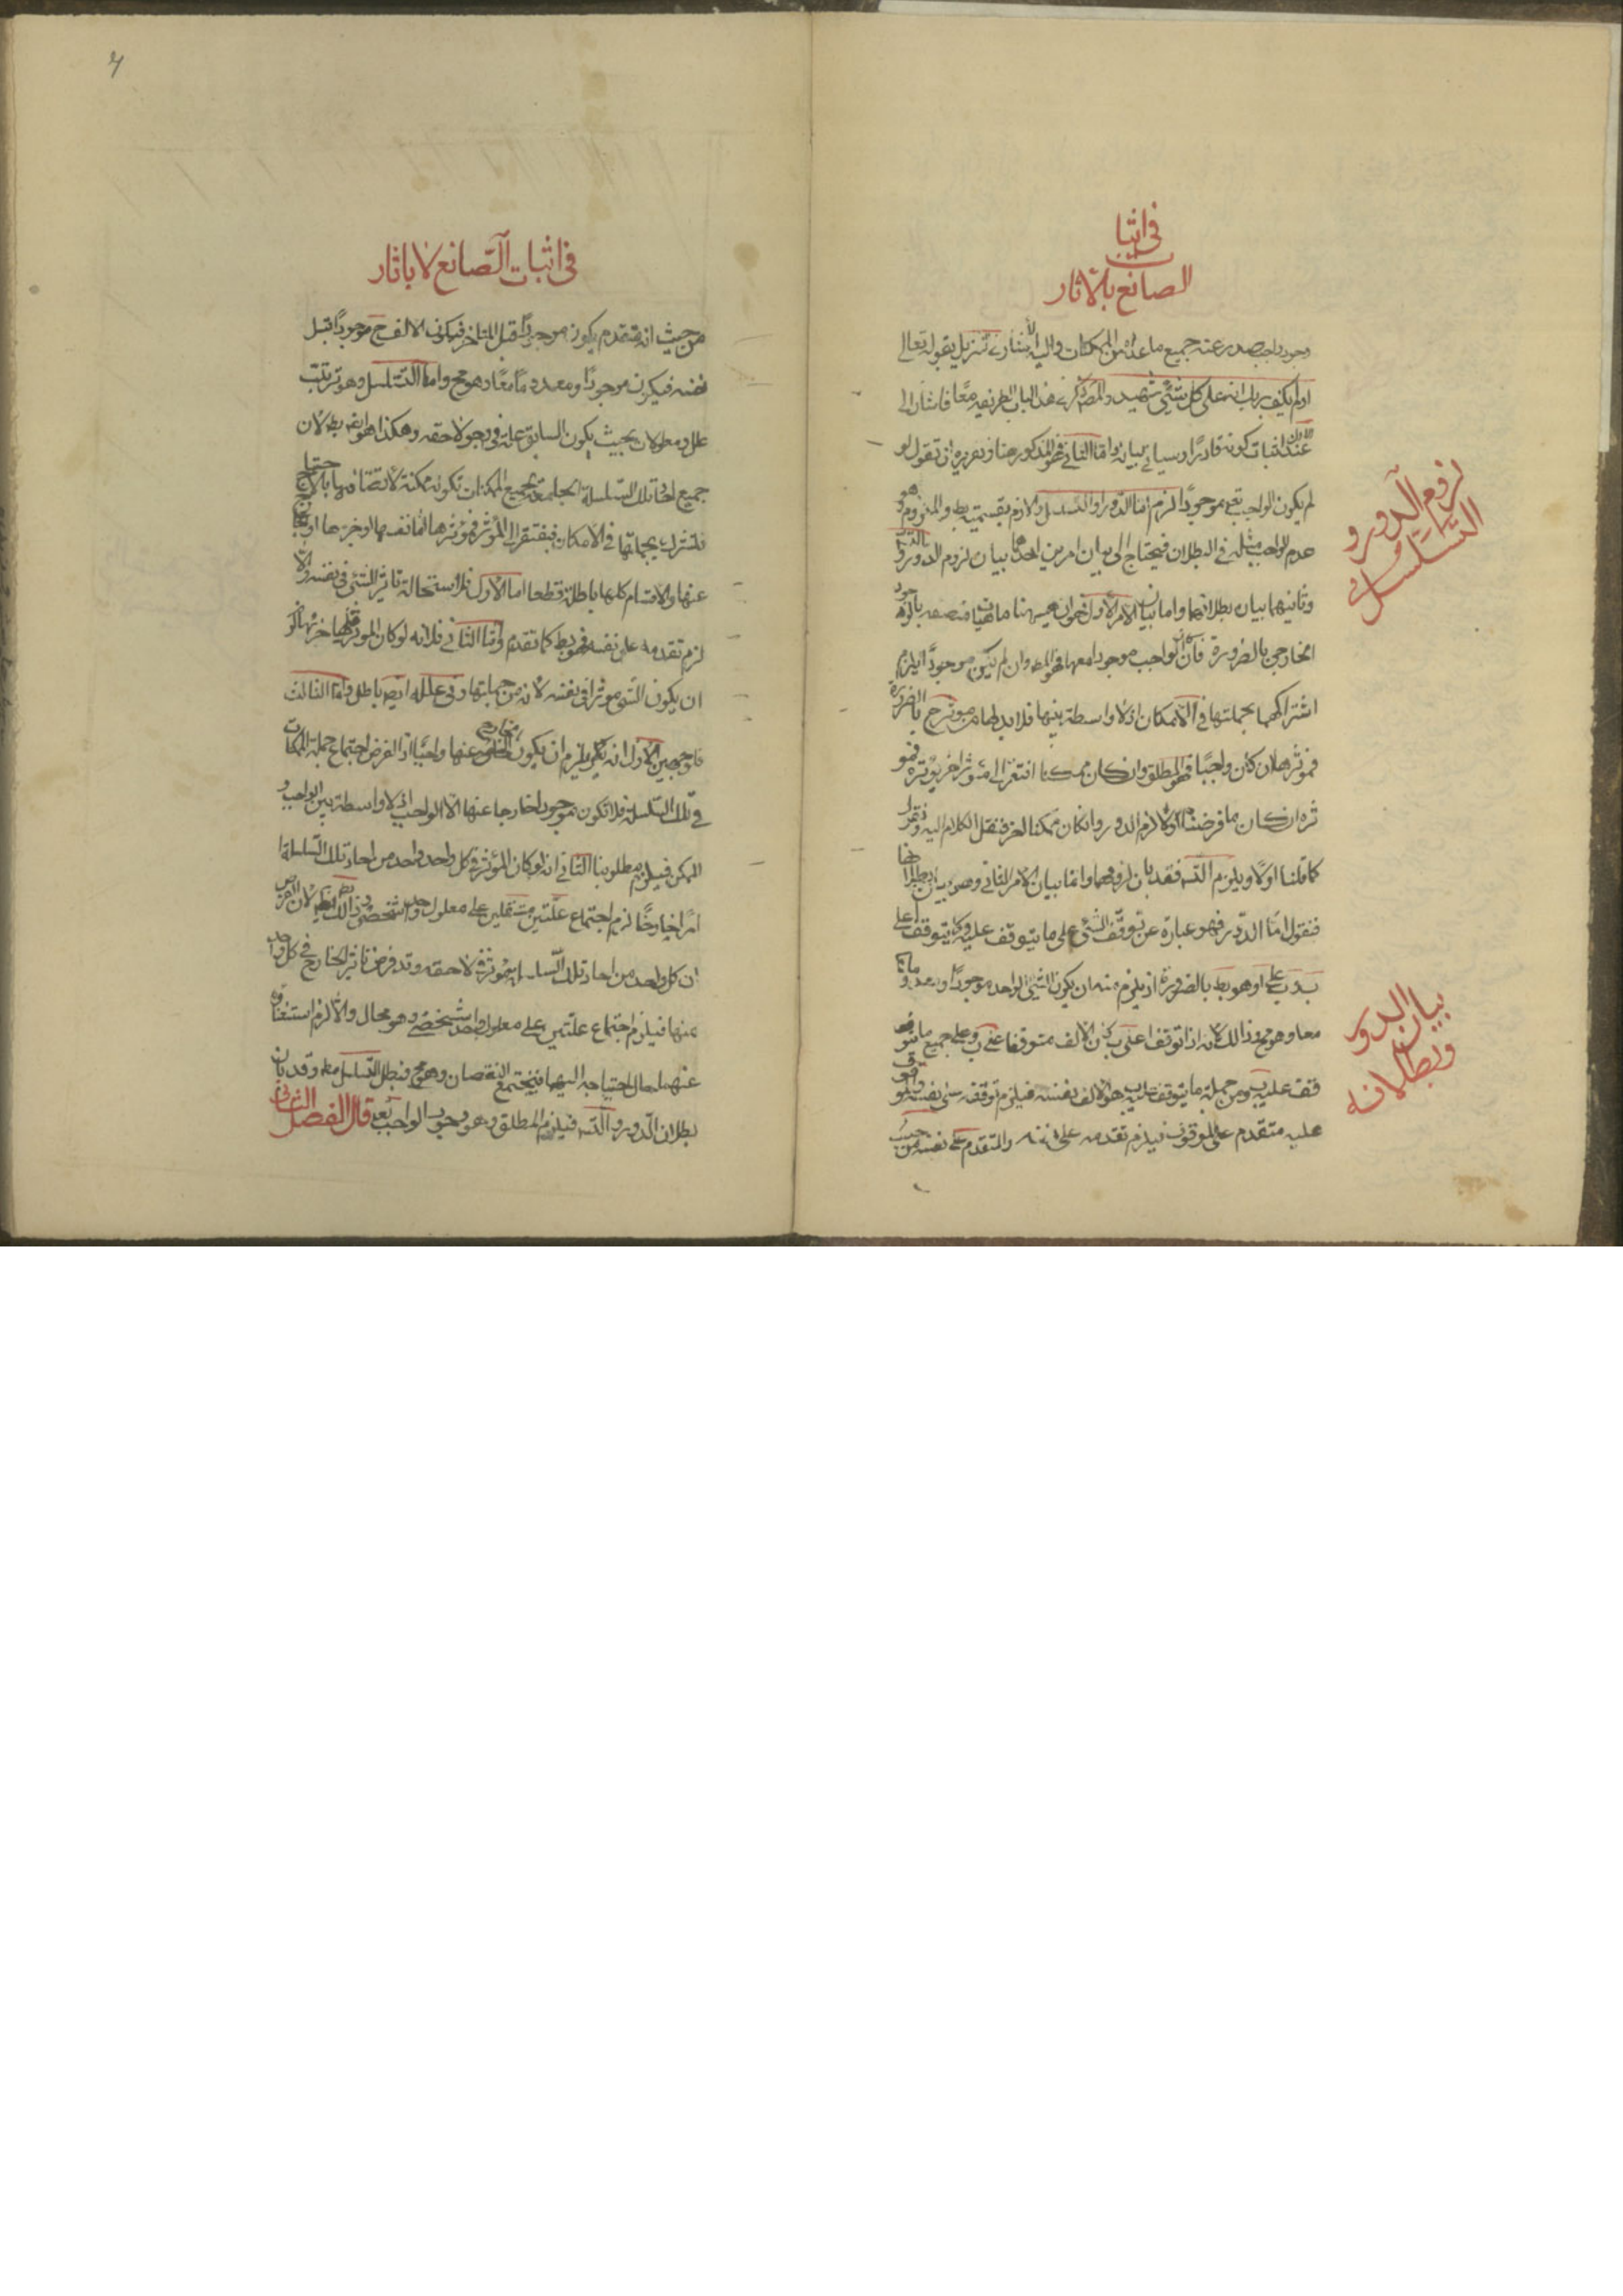 في اثبا
ت
الصانع بالاثار
وجود واجب يصدر عنه جميع ما عداه من الممكنات واليه الاشارة في تنزيل بقوله تعالى
اولم يكف بربك انه على كل شئي شهيد والمص ذكر في هذا الباب الطريقين معًا فاشار الى
الاول
عند اثبات كونه قادرًا وسياتي بيانه واما الثاني فهو المذكور هنا وتقريره ان تقول لو
لم يكون الواجب تعم موجودًا لزم اما الدور او التسلسل واللازم بقسميه بط والملزوم وهو
عدم الواجب مثله في البطلان فيحتاج الى بيان امرين احدهما بيان لزوم الدور والتسـ
وثانيهما بيان بطلانهما واما بيان الامر الاول فهو ان هيهنا ماهيات متصفة بالوجود
الخارجي بالضرورة فان كان الواجب موجودا معها فهو المط وان لم يكن موجودًا يلزم
اشتراكهما بجملتها في الامكان اذ لا واسطة بينهما فلابد لها من موثر ح بالضرورة
فموثرها ان كان واجبًا فهو المطلق وان كان ممكنا افتقر الى مؤثر اخر يوثره فمو
ثره ان كان ما فرضناه اولا لزم الدور وان كان ممكنا اخر فنقل الكلام اليه ونقول
كما قلنا اولًا ويلزم التسـ فقد بان لزومهما واما بيان الامر الثاني وهو بيان بطلانهما
فنقول اما الدور فهو عبارة عن توقف الشئي على ما يتوقف عليه كما يتوقف ا على
ب و ب على ا وهو بط بالضرورة اذ يلزم منه ان يكون الشئي الواحد موجودًا ومعدومًا
معا وهو مح وذالك لانه اذا توقف ا على ب كان الالف متوقفا على ب وعلى جميع ما يتو
قف عليه ب ومن جملة ما يتوقف عليه ب هو الالف نفسه فيلزم توقفه على نفسه والموقوف
عليه متقدم على الموقوف فيلزم تقدمه على نفسه والمتقدم على نفسه من حيث
لزوم الدور و
التسلسل
بيان الدور
وبطلانه
في اثبات الصانع لا باثار
من حيث انه متقدم يكون موجودًا قبل المتاخر فيكون الالف ح موجودًا قبل
نفسه فيكون موجودًا ومعدومًا معًا وهو مح واما التسلسل وهو ترتب
علل ومعلولات بحيث يكون السابق علة في وجود لاحقه وهكذا وهو ايضا بط لان
جميع احاد تلك السلسلة الجامعة لجميع الممكنات تكون ممكنة لاتصافها بالاحتياج
فتشترك بجملتها في الامكان فيفتقر الى المؤثر فموثرها اما نفسها او جزءها او الخارج
عنها والاقسام كلها باطلة قطعا اما الاول فلاستحالة تاثير الشئي في نفسه والا
لزم تقدمه على نفسه وهو بط كما تقدم واما الثاني فلانه لو كان المؤثر فيها جزئها لزم
ان يكون الشئ موثرا في نفسه لانه من جملتها وفي علله ايضا باطل واما الثالث
فلوجهين الاول انه يلزم ان يكون الخارج عنها واجبًا اذ الفرض اجتماع جملة الممكنات
في تلك السلسلة فلا تكون موجودا خارجا عنها الا الواجب اذ لا واسطة بين الواجب و
الممكن فيلزم مطلوبنا الثاني انه لو كان المؤثر في كل واحد واحد من احاد تلك السلسلة
امرًا خارجًا لزم اجتماع علتين مستقلين على معلول واحد شخصي وذالك بط لان الفرض
ان كل واحد من احاد تلك السلسلة موثر في لاحقه وقد فرض تاثير الخارج في كل واحد
منها فيلزم اجتماع علتين على معلول واحد شخصي وهو محال والا لزم استغناؤه
عنهما حال احتياجه اليهما فيجتمع النقيضان وهو مح فبطل التسلسل مط وقد بان
بطلان الدور والتسـ فيلزم المطلق وهو وجود الواجب تعه قال الفصل الثاني